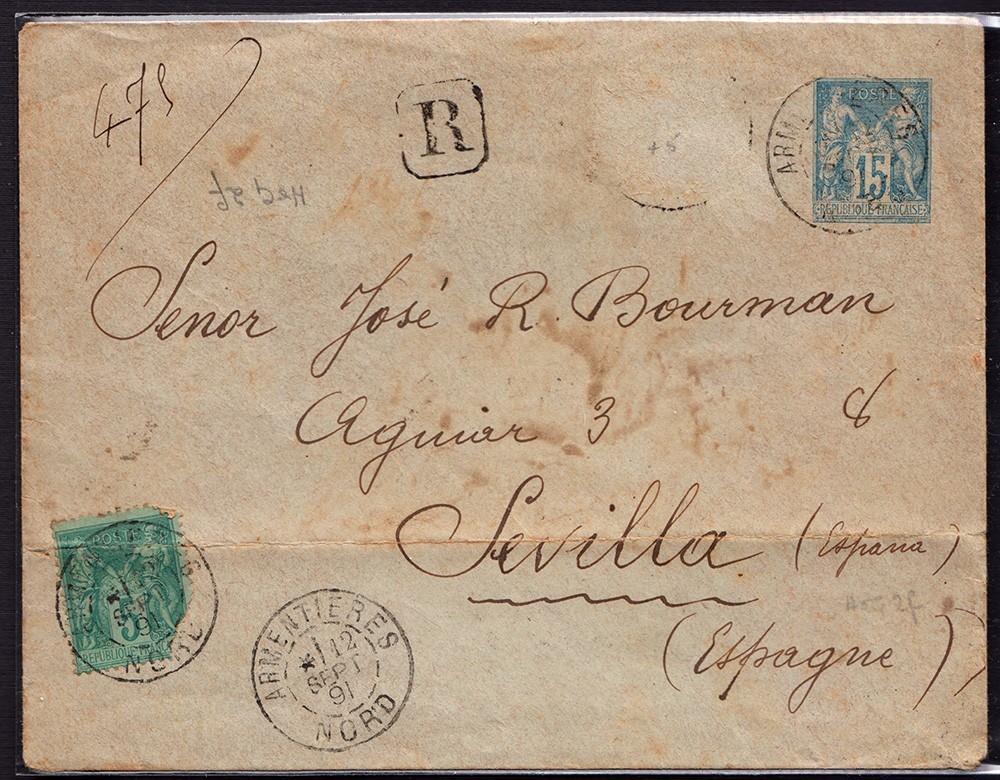 475
R
+5
ARMENTIERES
POSTE
15
REPUBLIQUE FRANÇAISE
Senor José R. Bourman
Aguiar 3 8
Sevilla (Espana)
(Espagne)
POSTE
5
REPUBLIQUE FRANC
12
SEPT
91
NORD
ARMENTIERES
12
SEPT
91
NORD